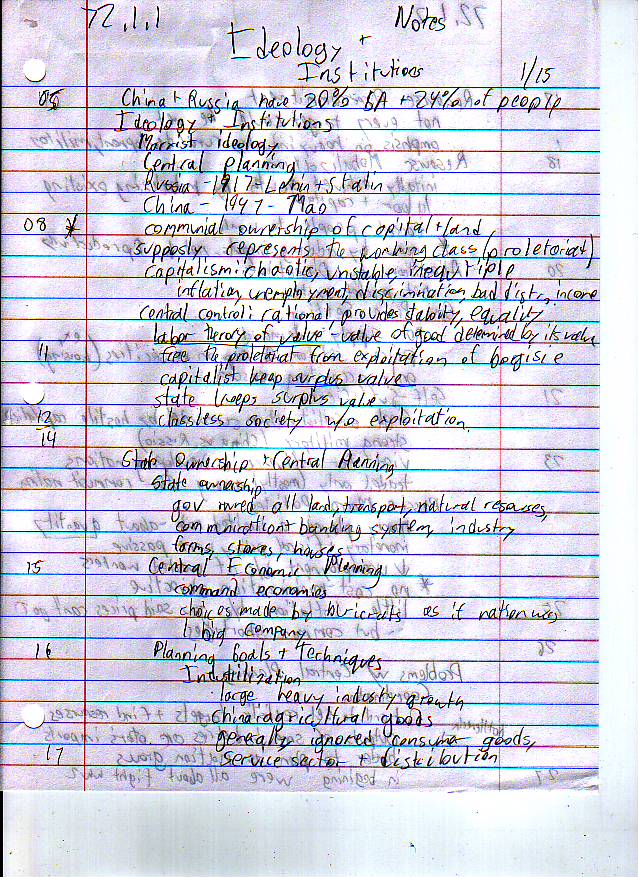 72.1.1 Notes
Ideology +
Institutions 1/15
05 China + Russia have 20% GA + 24% of people
Ideology + Institutions
Marxist ideology
Central planning
Russia - 1917 - Lenin + Stalin
China - 1947 - Mao
08 * communial ownership of capital + land,
supposly represents the working class (proletoriat)
capitalism: chaotic, unstable, ineqitiple
inflation, unemployment, discrimination, bad distr, income
central control: rational provides stability, equality
labor theory of value - value of good determined by its value
11 free the proletariat from exploitation of
capitalist keep surplus value
state keeps surplus value
12 classless society w/o exploitation.
14
State Ownership + Central Planning
State ownership
gov owned all land, transport, natural resourses,
communication + banking system, industry
farms, stores, houses
15 Central Economic Planning
command economies
choices made by buricrats as if nation was
1 big company
16 Planning Goals + Techniques
Industilization
large heavy industy growth
China: agricultural goods
generally ignored consumer goods,
17 service sector + distribution